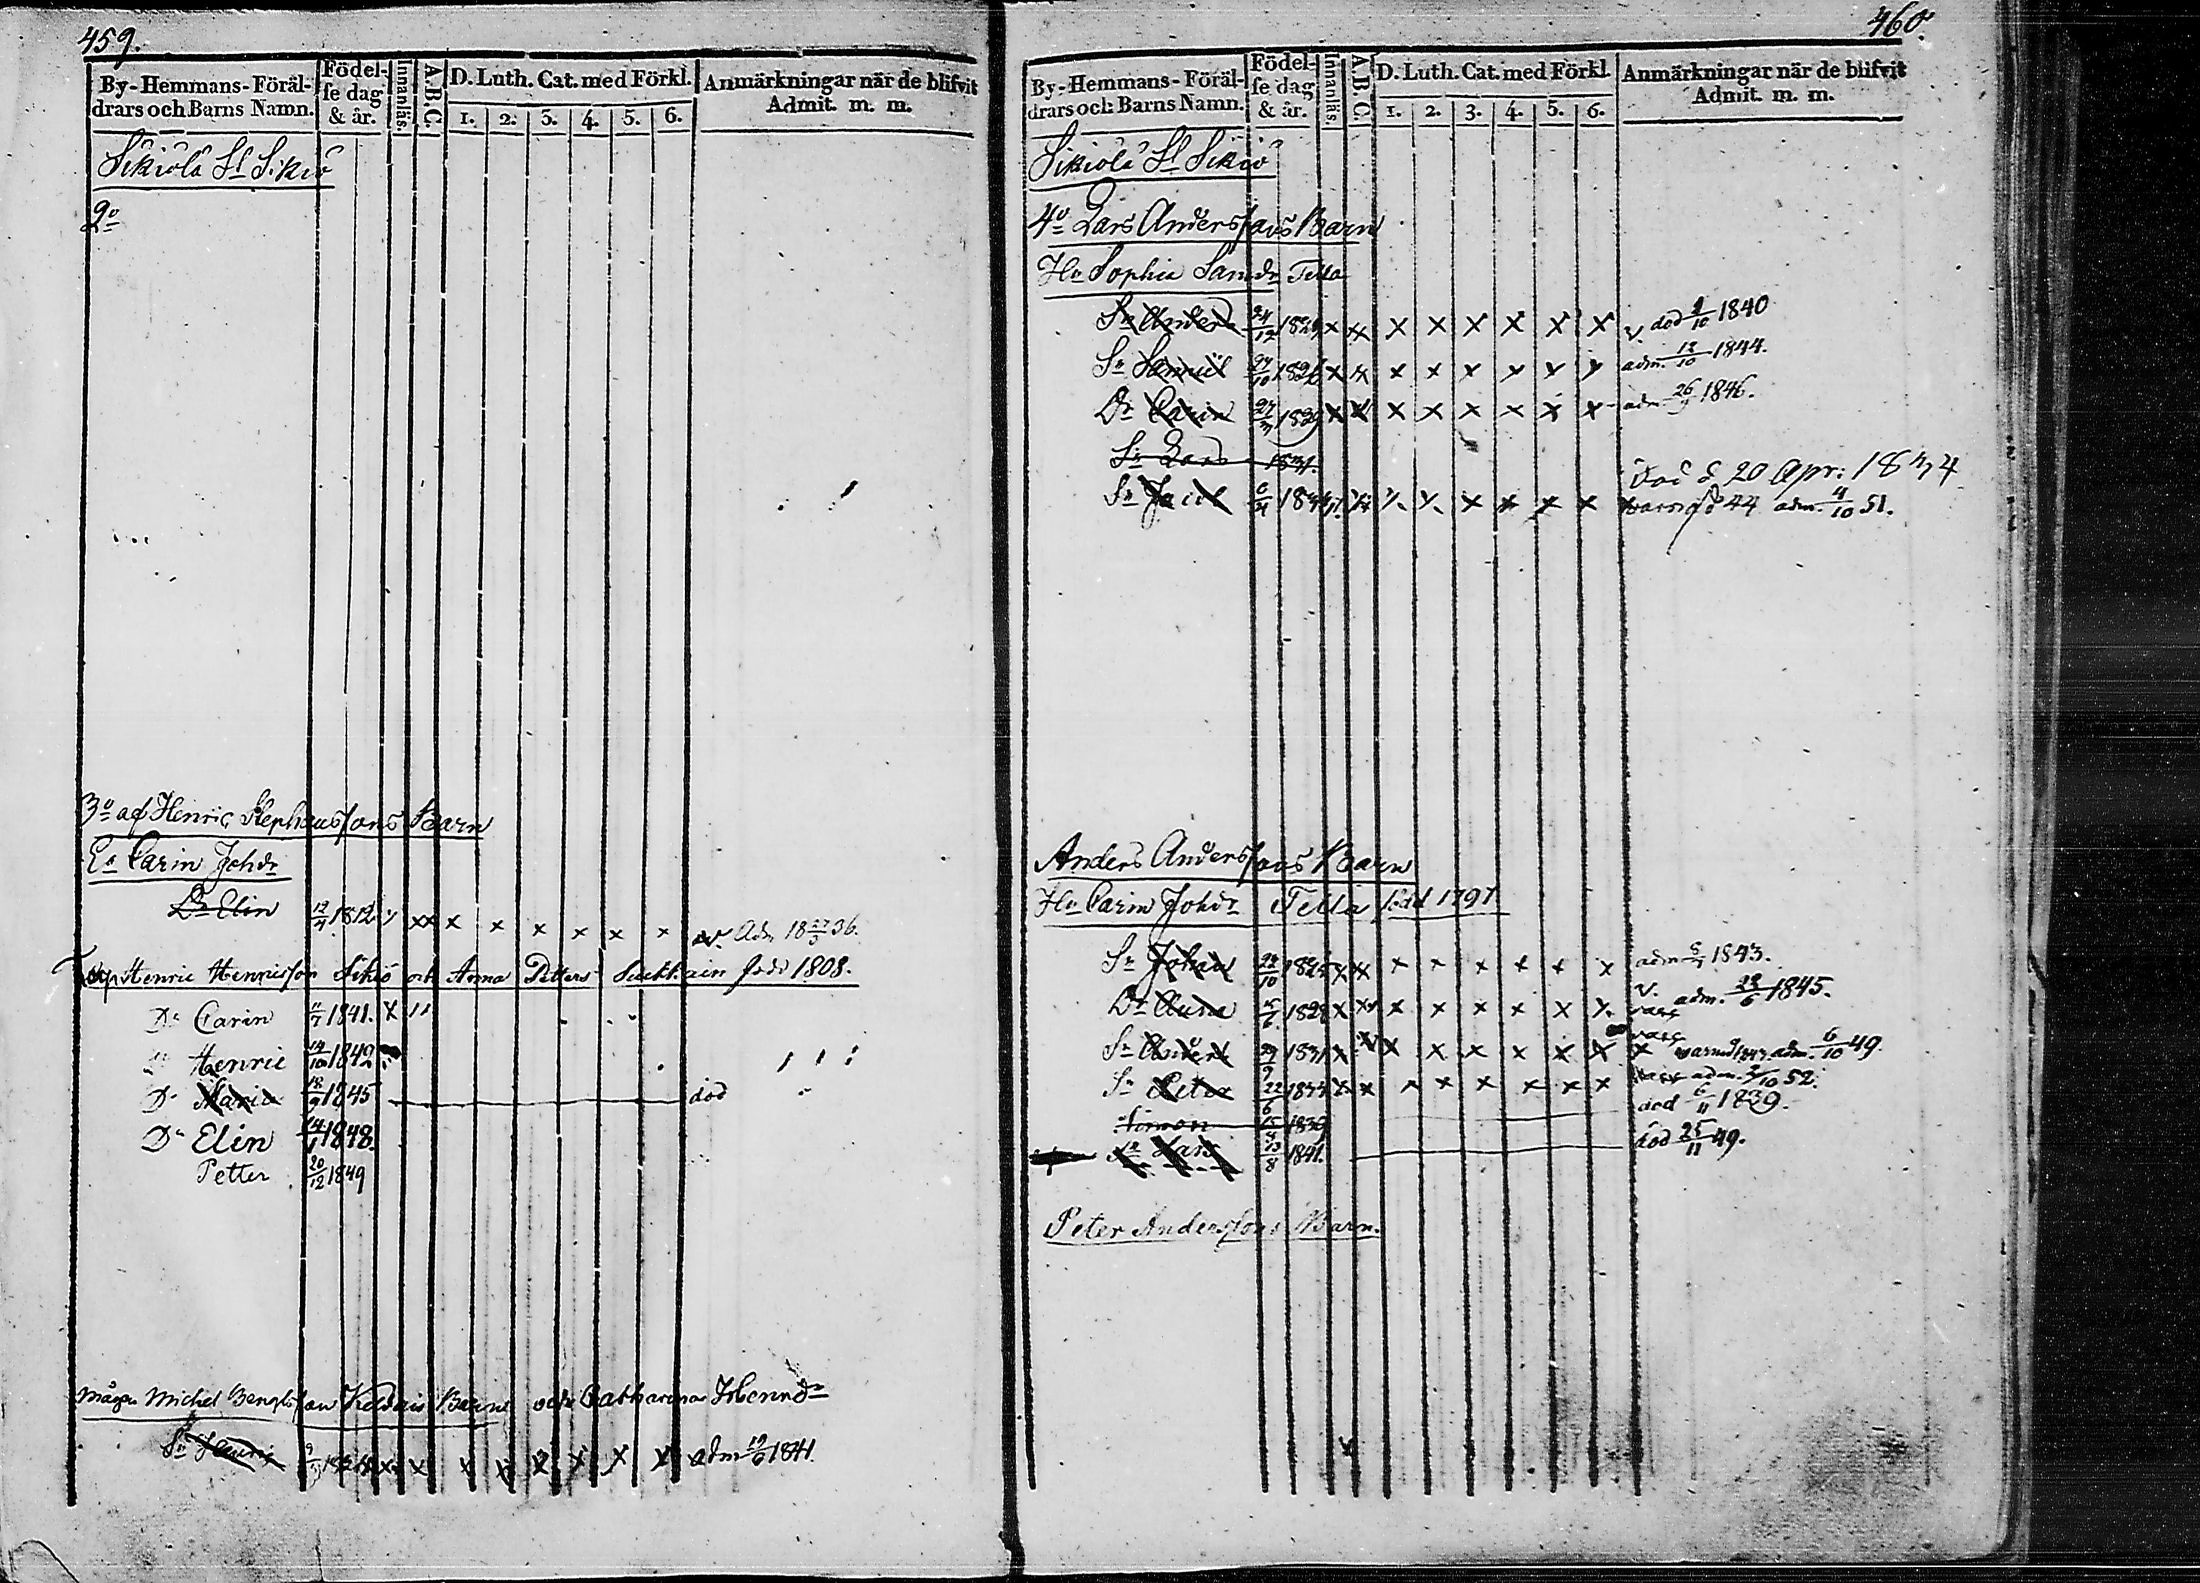 459.
By-Hemmans-Föräl-
drars och Barns Namn.
Födel-
se dag
& år.
Innanläs.
A.B.C.
D. Luth. Cat. med Förkl.
1. 2. 3. 4. 5. 6.
Anmärkningar när de blifvit
Admit. m. m.
Sikiölä Sl Sikiö
2o
3o af Henric Stephansons Barn
Ea Carin Johdr
Dr Elin 12/4 1812 x xx x x x x x x v. Adm 18 27/3 36.
Henric Henricson Sikiö och Anna Petters född 1808.
Dr Carin 11/7 1841. x
Henric 14/10 1842
Dr Maria 18/9 1845 död
Dr Elin 14/1 1848.
Petter 20/12 1849
mågen Michel Bengtson Barn och Catharina Henrdr
Sn x x x x x x x x adm 19/6 1841.
460.
By-Hemmans-Föräl-
drars och Barns Namn.
Födel-
se dag
& år.
Innanläs.
A.B.C.
D. Luth. Cat. med Förkl.
1. 2. 3. 4. 5. 6.
Anmärkningar när de blifvit
Admit. m. m.
Sikiölä Sl Sikiö
4o Lars Andersons Barn
Hu Sophia Samdr Tella
Sn Anders 24/12 182 x x x x x x x x v. död 9/10 1840
Sn Samuel 27/10 1826 x x x x x x x x adm. 12/10 1844.
Dr Carin 27/3 1829 x x x x x x x x adm. 26/9 1846.
Sn Lars 1831. Död d 20 Apr: 1834
Sn Jacob 6/4 x x x x 44 adm. 4/10 51.
Anders Andersons Barn
Hu Carin Johdr Tella född 1797
Sn Johan 22/10 1825 x x x x x x x x adm 1843.
Dr Anna 15/6 1828 x x x x x x x x v. adm. 22/6 1845.
Sn Anders 1831 x x x x x x x x adm. 6/10 49.
Sn Peter 22/6 1834 x x x x x x x x adm. 2/10 52.
Simon 15/4 1839 död 6/11 1839.
Sn Lars 13/8 1841. död 25/11 49.
Peter Andersons Barn.